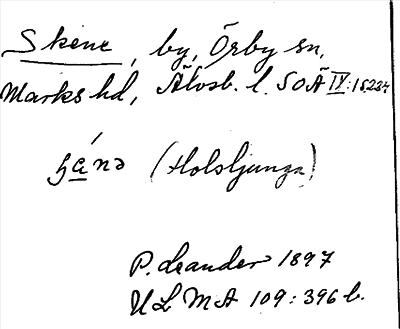 Skene, by, Örby sn,
Marks hd, Älvsb. l. SOÄ IX: 152 ff
(Holsljunga)
P. Leander 1897
ULMA 109:396 b.